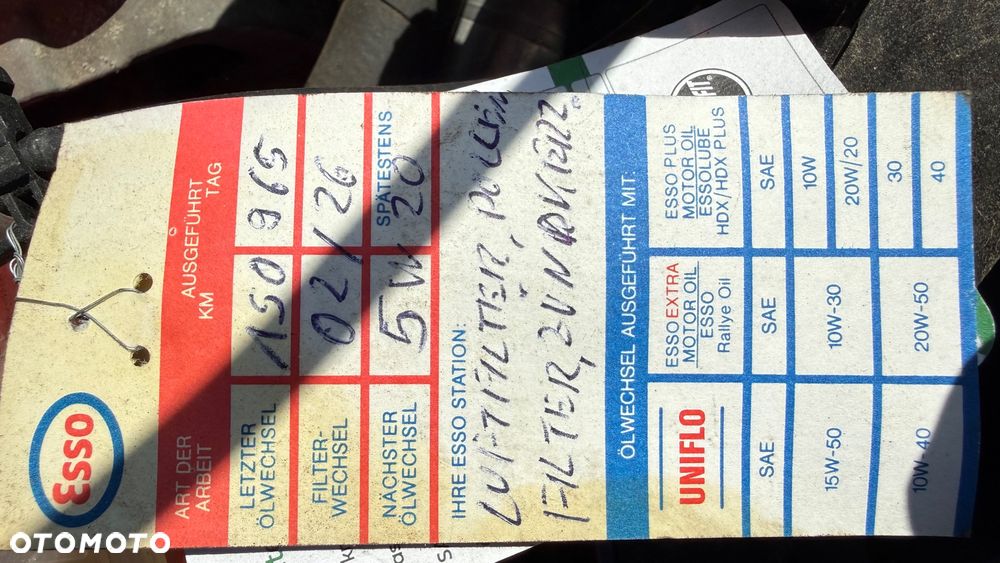 ESSO
ART DER ARBEIT
AUSGEFÜHRT
KM TAG
LETZTER ÖLWECHSEL 150 965
FILTER-WECHSEL 02/26
NÄCHSTER ÖLWECHSEL 5W 20 SPÄTESTENS
IHRE ESSO STATION:
LUFTFILTER, POLLEN
FILTER, ZÜNDKERZ.
ÖLWECHSEL AUSGEFÜHRT MIT:
UNIFLO
ESSO EXTRA MOTOR OIL
ESSO Rallye Oil
ESSO PLUS MOTOR OIL
ESSOLUBE HDX/HDX PLUS
SAE SAE SAE
15W-50 10W-30 10W
20W/20
10W-40 20W-50 30
40
FIT
OTOMOTO